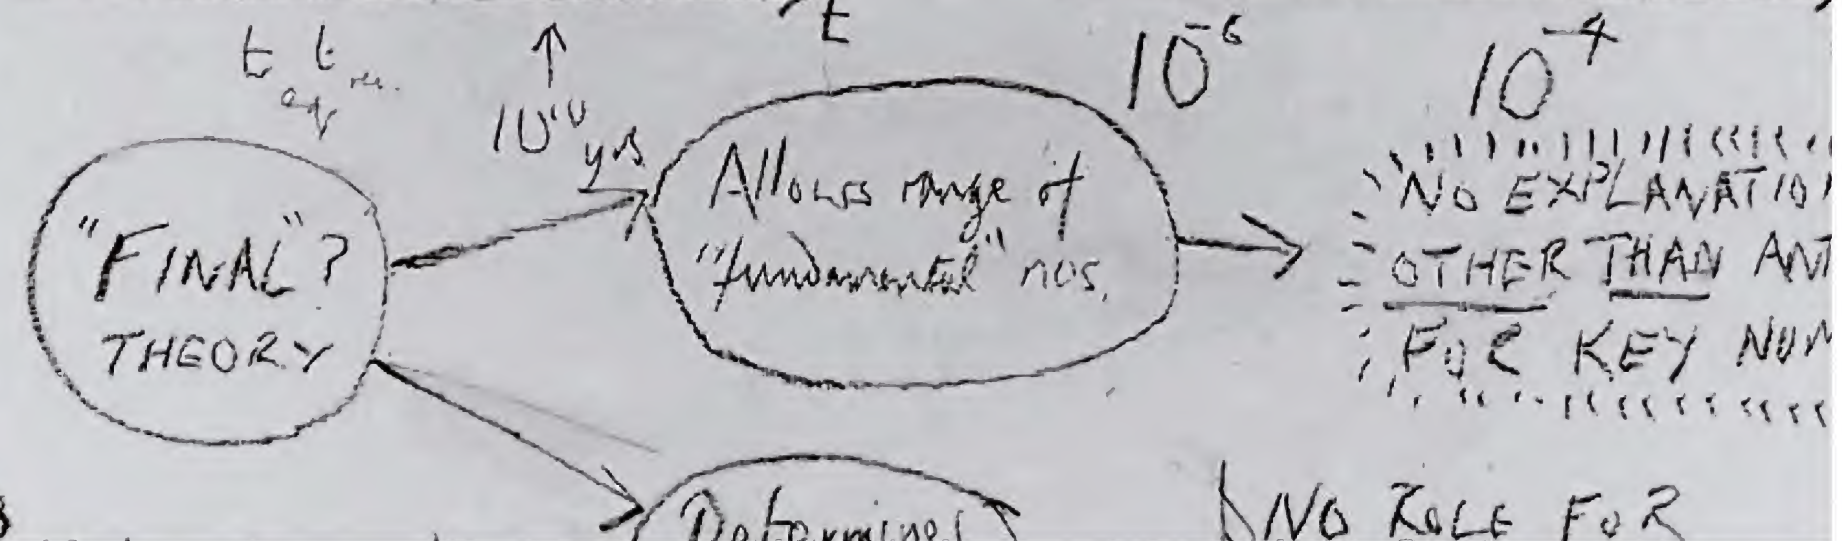 t
t_eq t_rec.
↑
10^10 yrs
10^-6
10^-4
"FINAL"?
THEORY
Allows range of
"fundamental" nos.
NO EXPLANATIO
OTHER THAN ANT
FOR KEY NUM
Determines
NO ROLE FOR